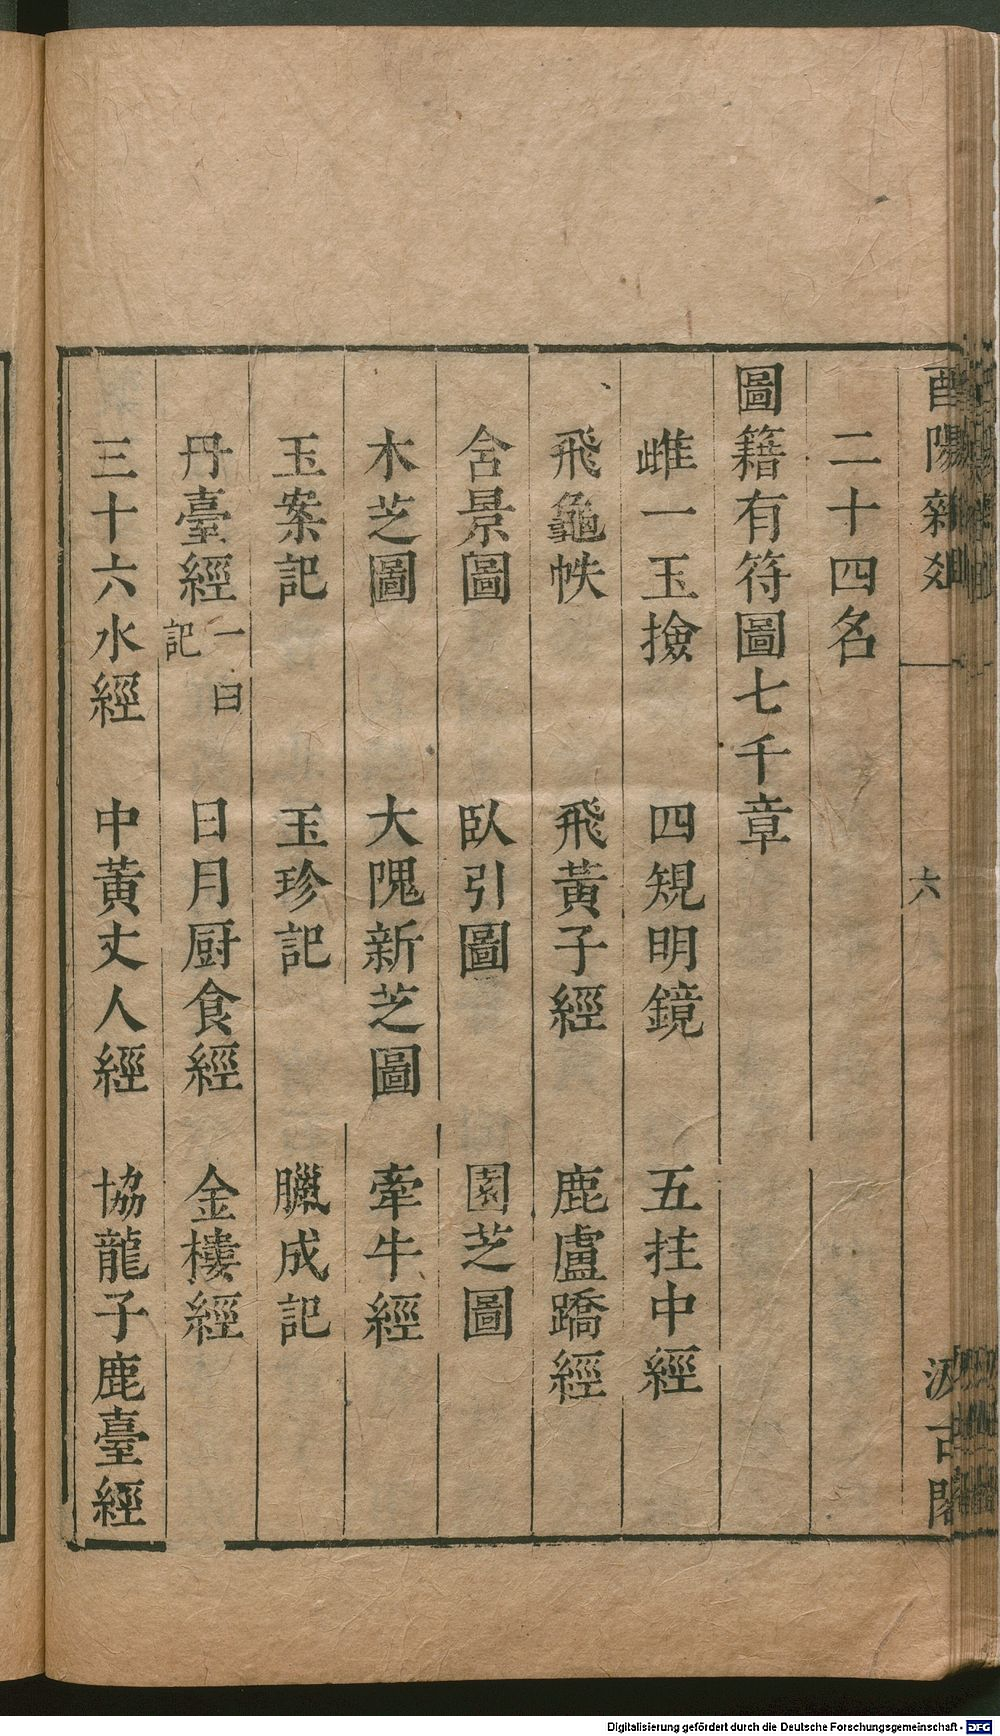 酉陽雜俎 六 汲古閣
二十四名
圖籍有符圖七千章
雌一玉撿 四規明鏡 五挂中經
飛龜帙 飛黃子經 鹿盧蹻經
含景圖 臥引圖 園芝圖
木芝圖 大隗新芝圖 牽牛經
玉案記 玉珍記 臘成記
丹臺經 一曰記 日月厨食經 金樓經
三十六水經 中黃丈人經 協龍子鹿臺經
Digitalisierung gefördert durch die Deutsche Forschungsgemeinschaft - DFG